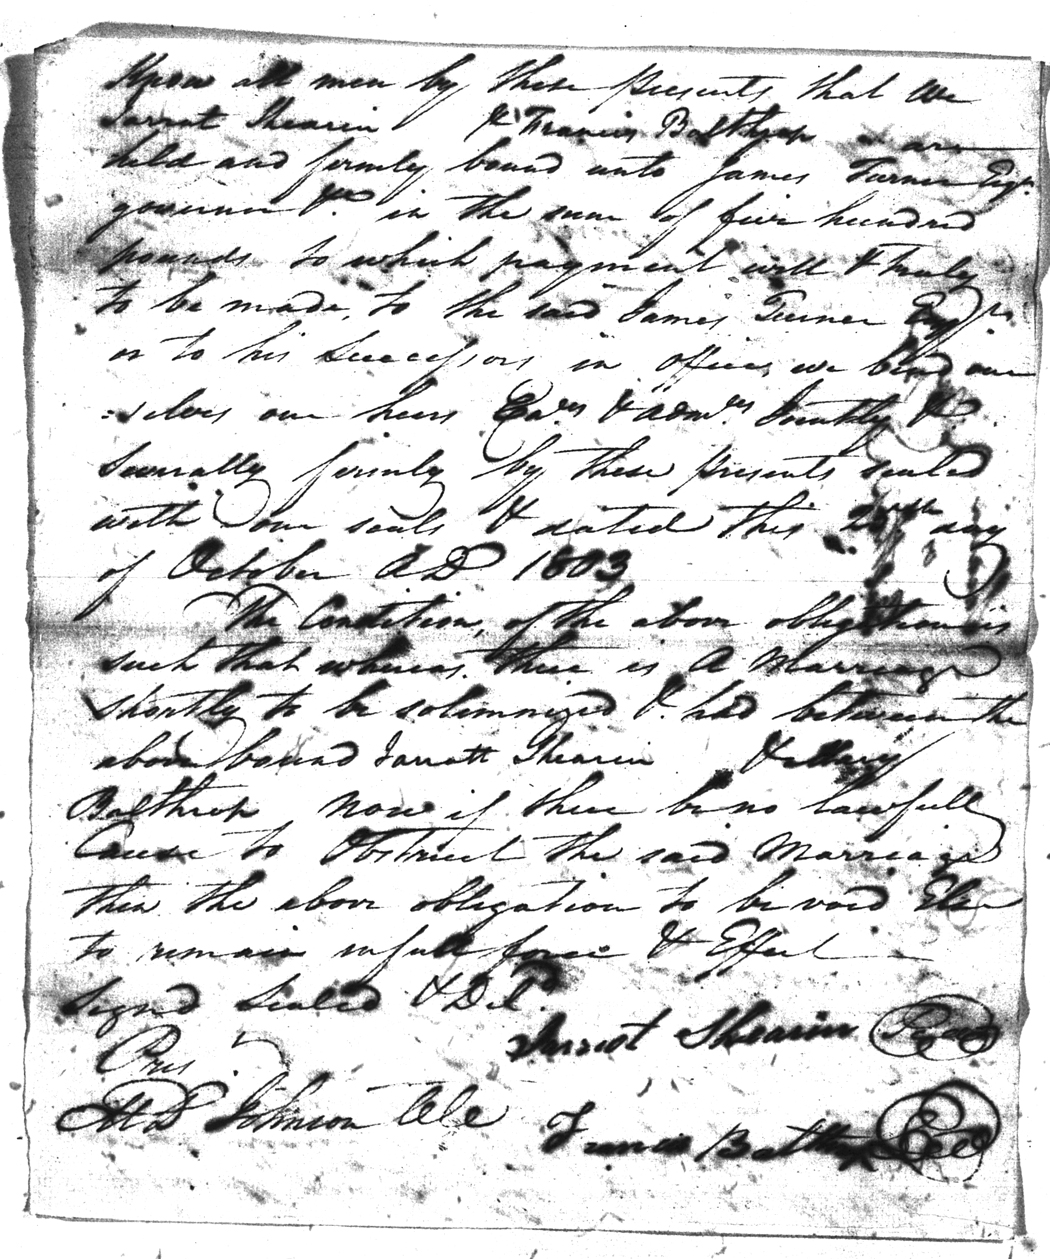 Know all men by these presents that We
Jarrat Shearin & Francis Balthrop are
held and firmly bound unto James Turner Esqr.
governor &c in the sum of five hundred
pounds to which payment will & truly
to be made, to the said James Turner Esqr
or to his Successors in office, we bind our
selves our heirs Exrs & admrs Jointly &
Severally firmly by these presents sealed
with our seals & dated this day
of October AD 1803
The Condition, of the above obligation is
such that whereas there is A Marriage
shortly to be solemnized & had between the
above bound Jarratt Shearin & Mary
Balthrop Now if there be no lawfull
Cause to Obstruct the said Marriage
then the above obligation to be void Else
to remain in full force & Effect
Signd Sealed & Deld
Jarriot Shearin Seal
Pres
M D Johnson
Francis Balthrop Seal